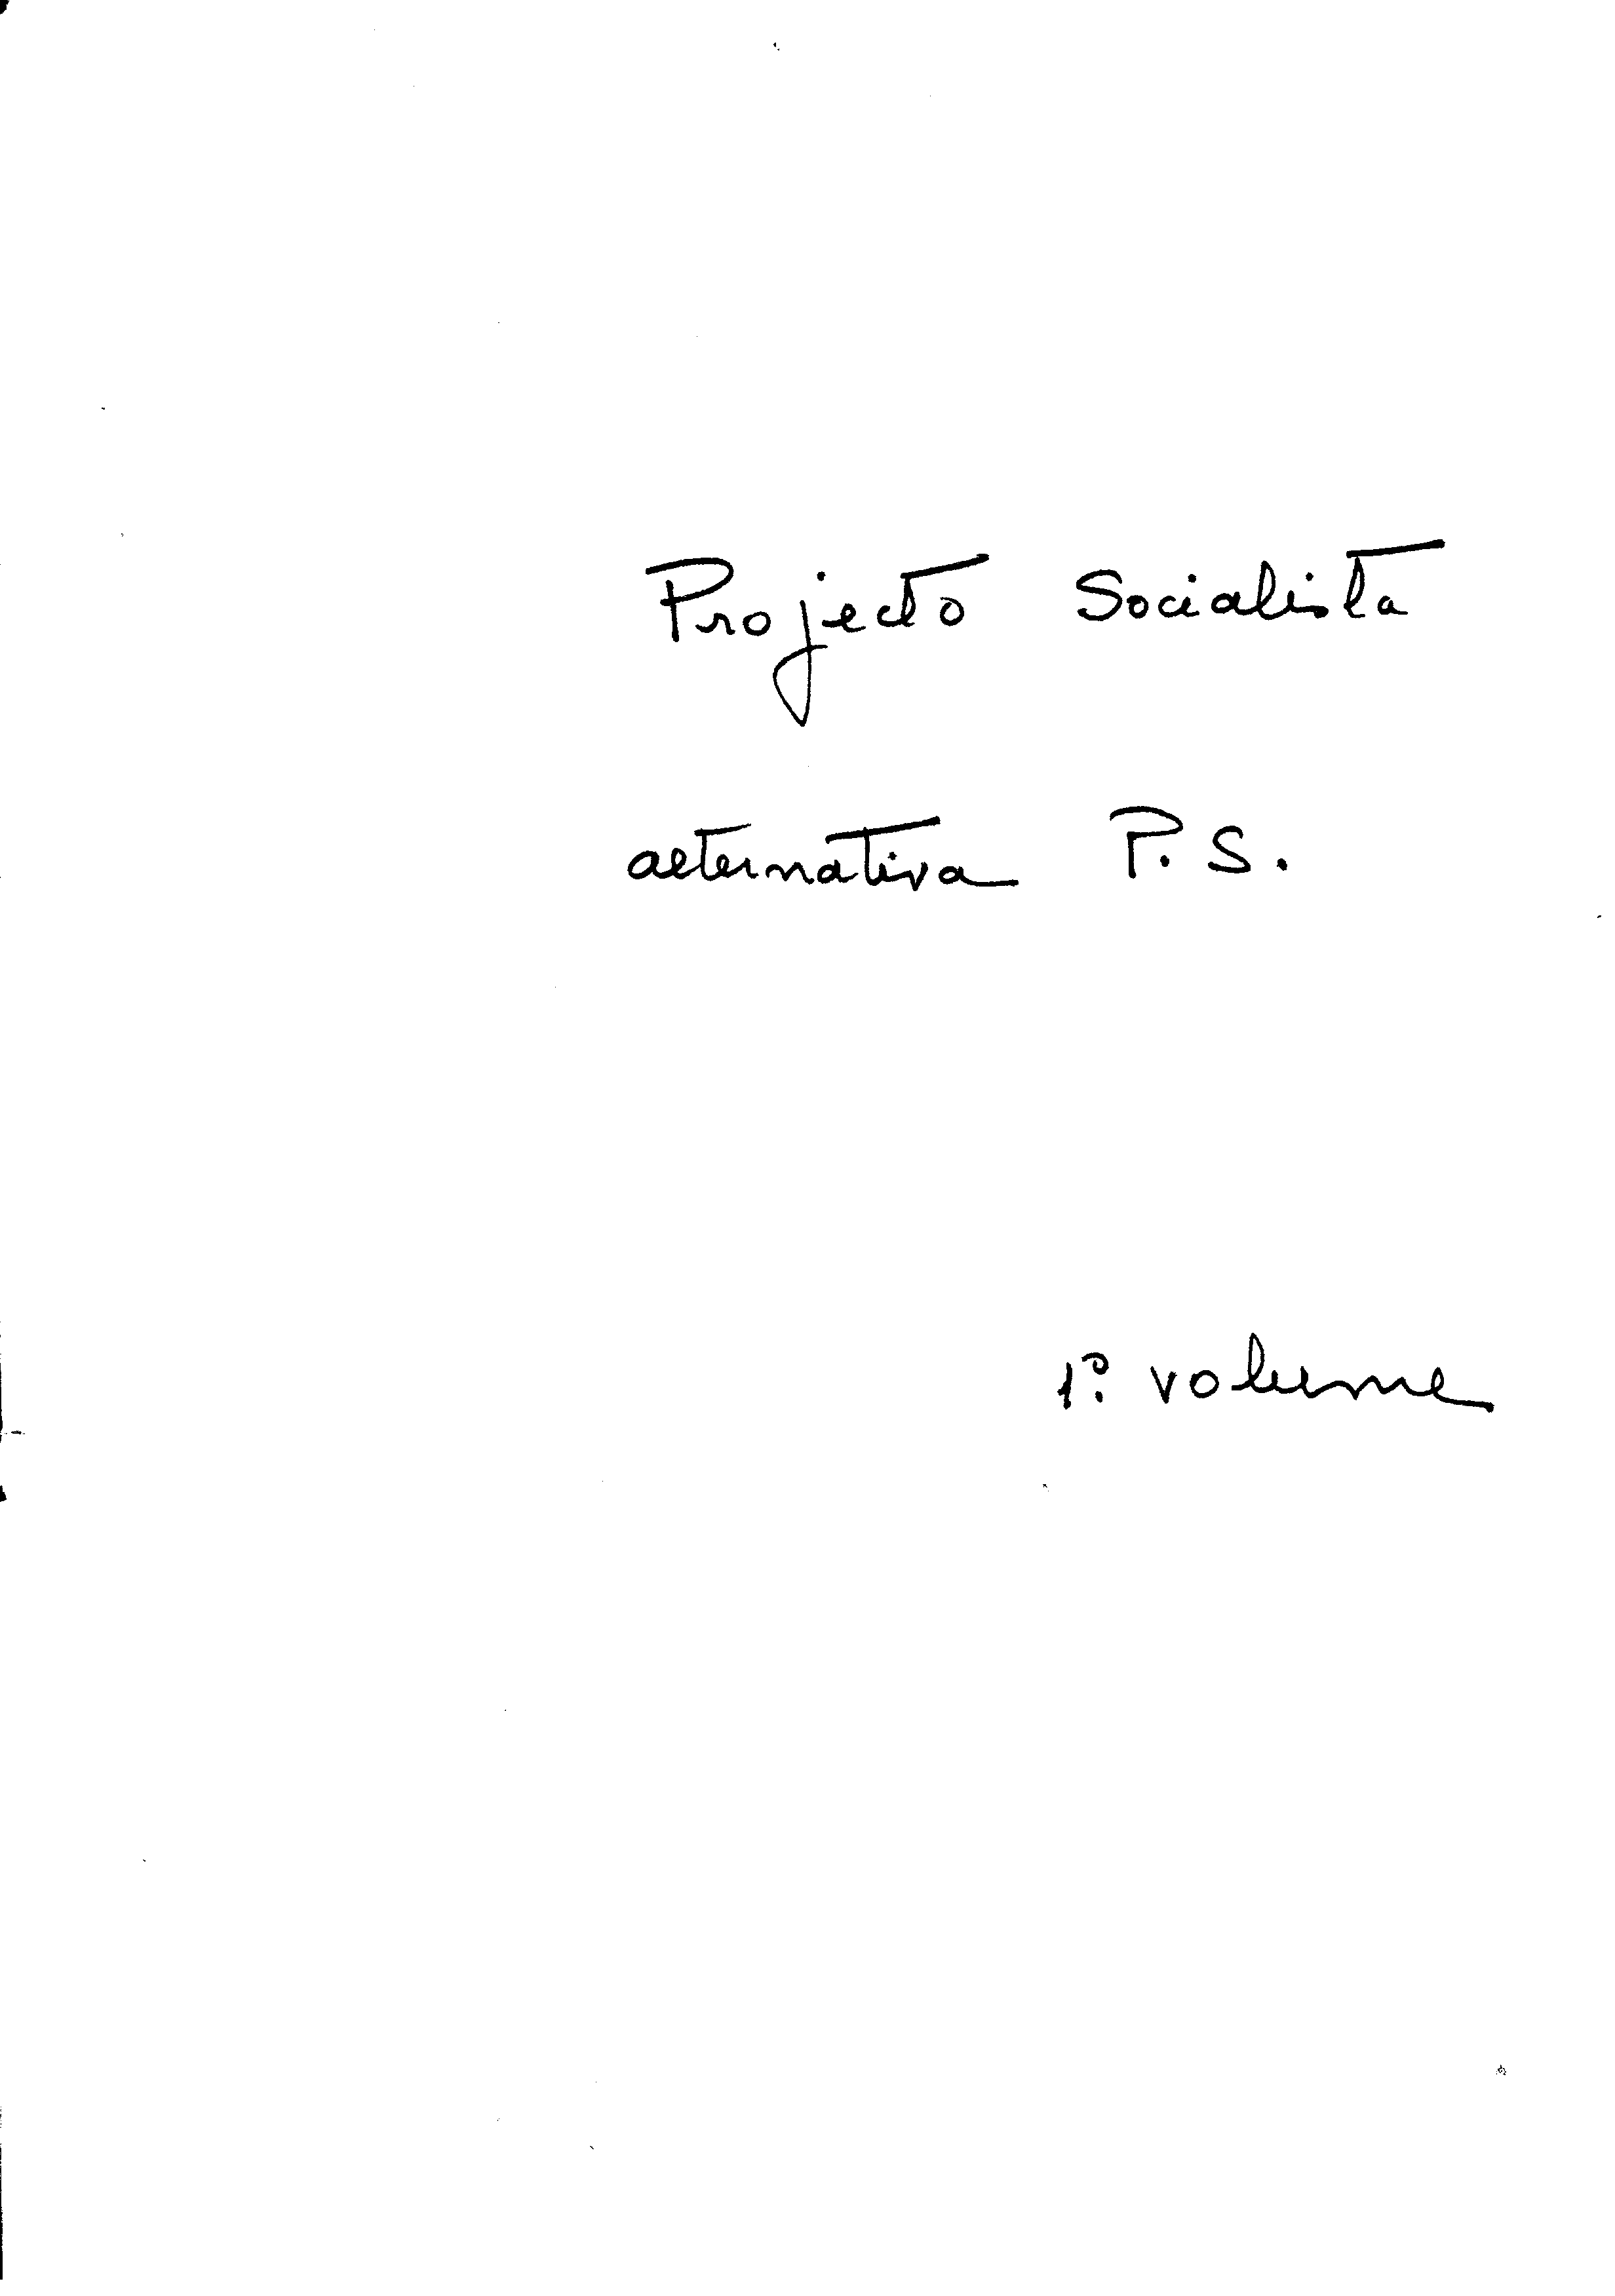 Projecto Socialista
alternativa P.S.
1º. volume